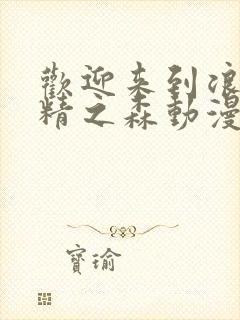 歡迎来到浪
精之森動漫
寶瑜